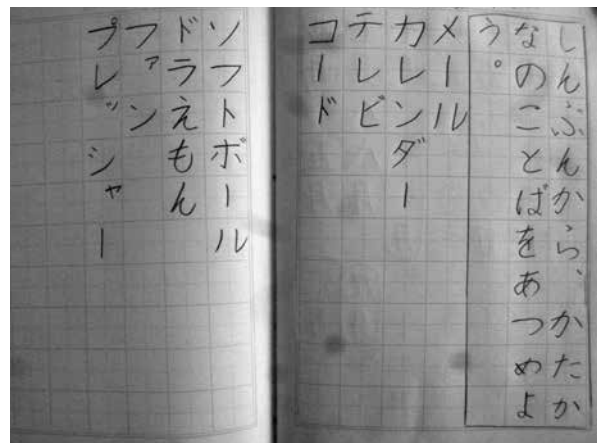 しんぶんから、かたか
なのことばをあつめよ
う。
メール
カレンダー
テレビ
コード
ソフトボール
ドラえもん
ファン
プレッシャー